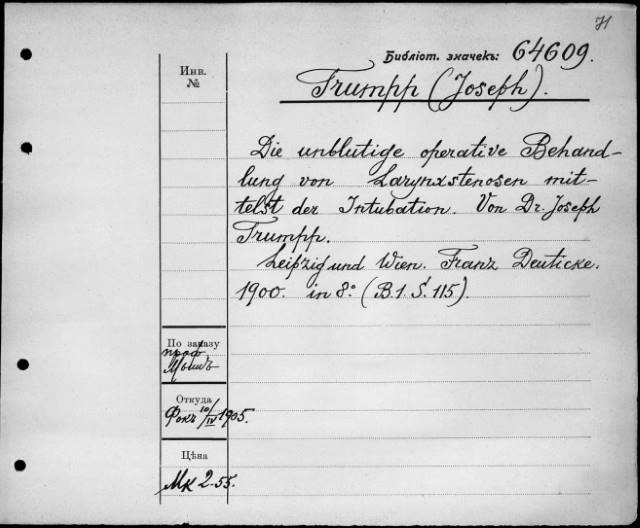 71
Библіот. значекъ: 64609.
Инв.
№
Trumpp (Joseph).
Die unblutige operative Behand-
lung von Larynxstenosen mit-
telst der Intubation. Von Dr. Joseph
Trumpp.
Leipzig und Wien. Franz Deuticke.
1900. in 8° (B.1 S. 115).
По заказу
проф.
Мышъ
Откуда
Фокъ 10/IV 1905.
Цѣна
Мк 2.55.